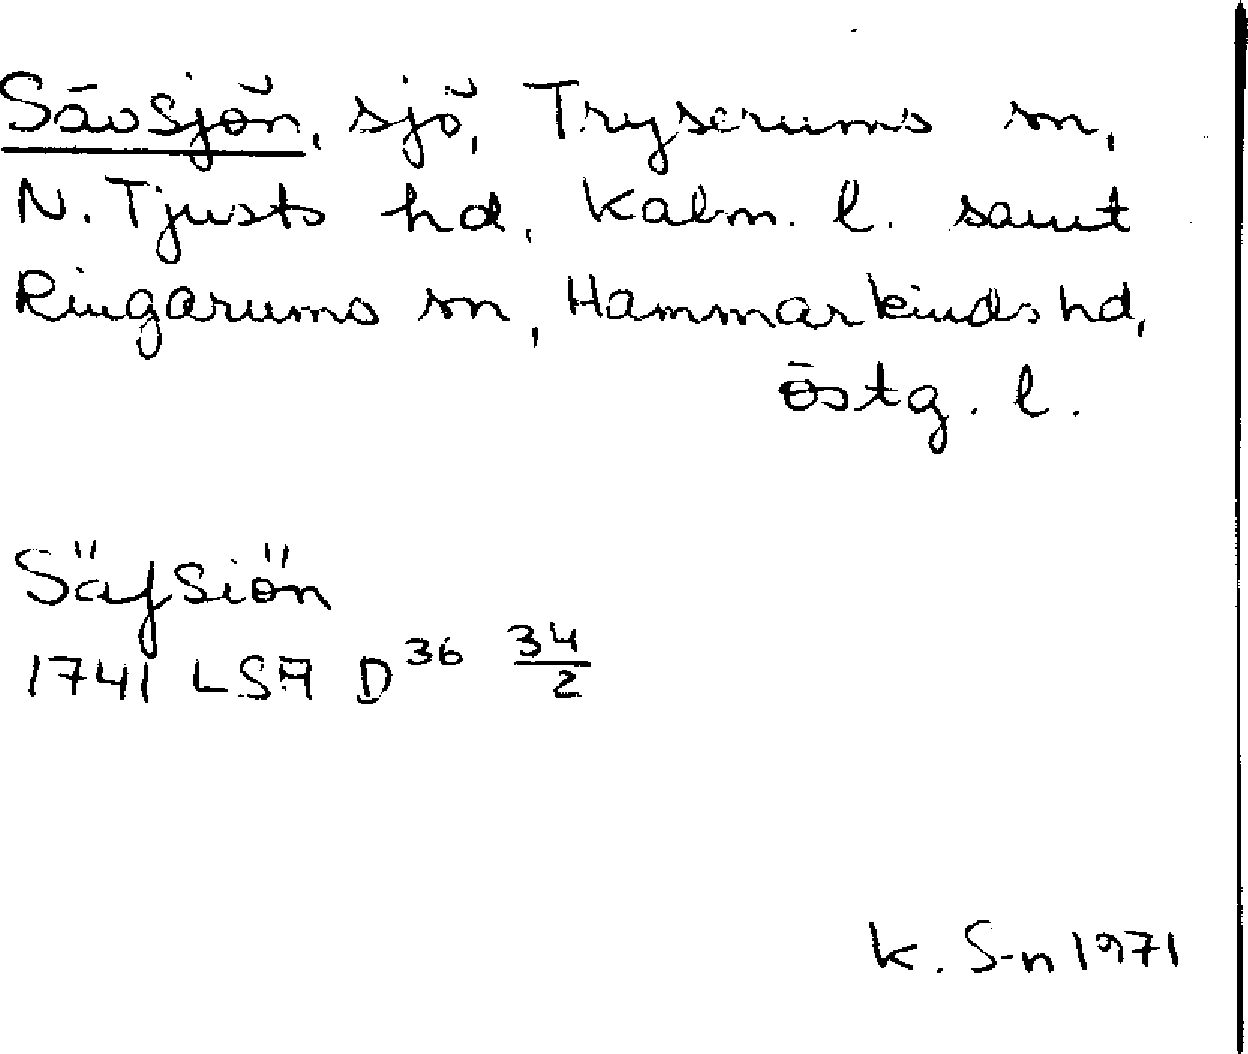 Sävsjön, sjö, Tryserums sn,
N. Tjusts hd, Kalm. l. samt
Ringarums sn, Hammarkinds hd,
Östg. l.
Säfsiön
1741 LSA D 36 34/2
K. S-n 1971